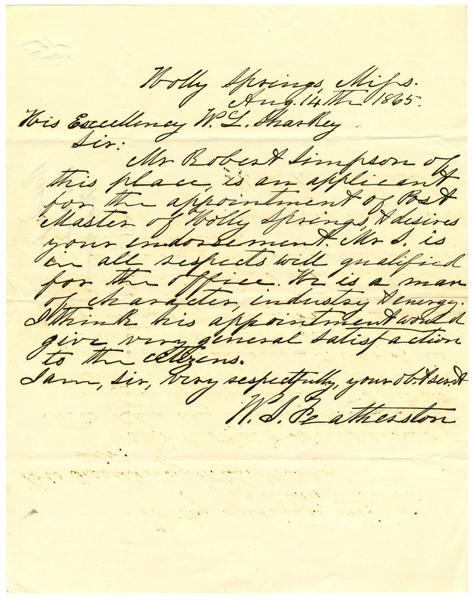 Holly Springs, Miss.
Aug. 14th 1865.
His Excellency W. L. Sharkey
Sir:
Mr Robert Simpson of
this place, is an applicant
for the appointment of Post
Master of Holly Springs, & desires
your endorsement. Mr S, is
in all respects well qualified
for the office. He is a man
of character, industry & energy.
I think his appointment would
give very general satisfaction
to the citizens.
I am, Sir, very respectfully, your obt servt
W. S. Featherston